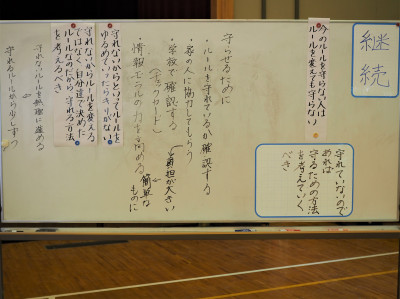 継続
今のルールを守らない人は
ルールを変えても守らない
守れていないので
あれば
守るための方法
を考えていく
べき
守らせるために
・ルールを守れているか確認する
・家の人に協力してもらう
・学校で確認する
(チェックカード)
負担が大きい
簡単な
ものに
・情報モラルの力を高める
守れないからといってルールを
ゆるめていったらきりがない
守れないからルールを変える
ではなく、自分達で決めた
ルールなのだから守れる方法
を考えるべき
守れないルールを無理に進める
守れるルールから少しずつ